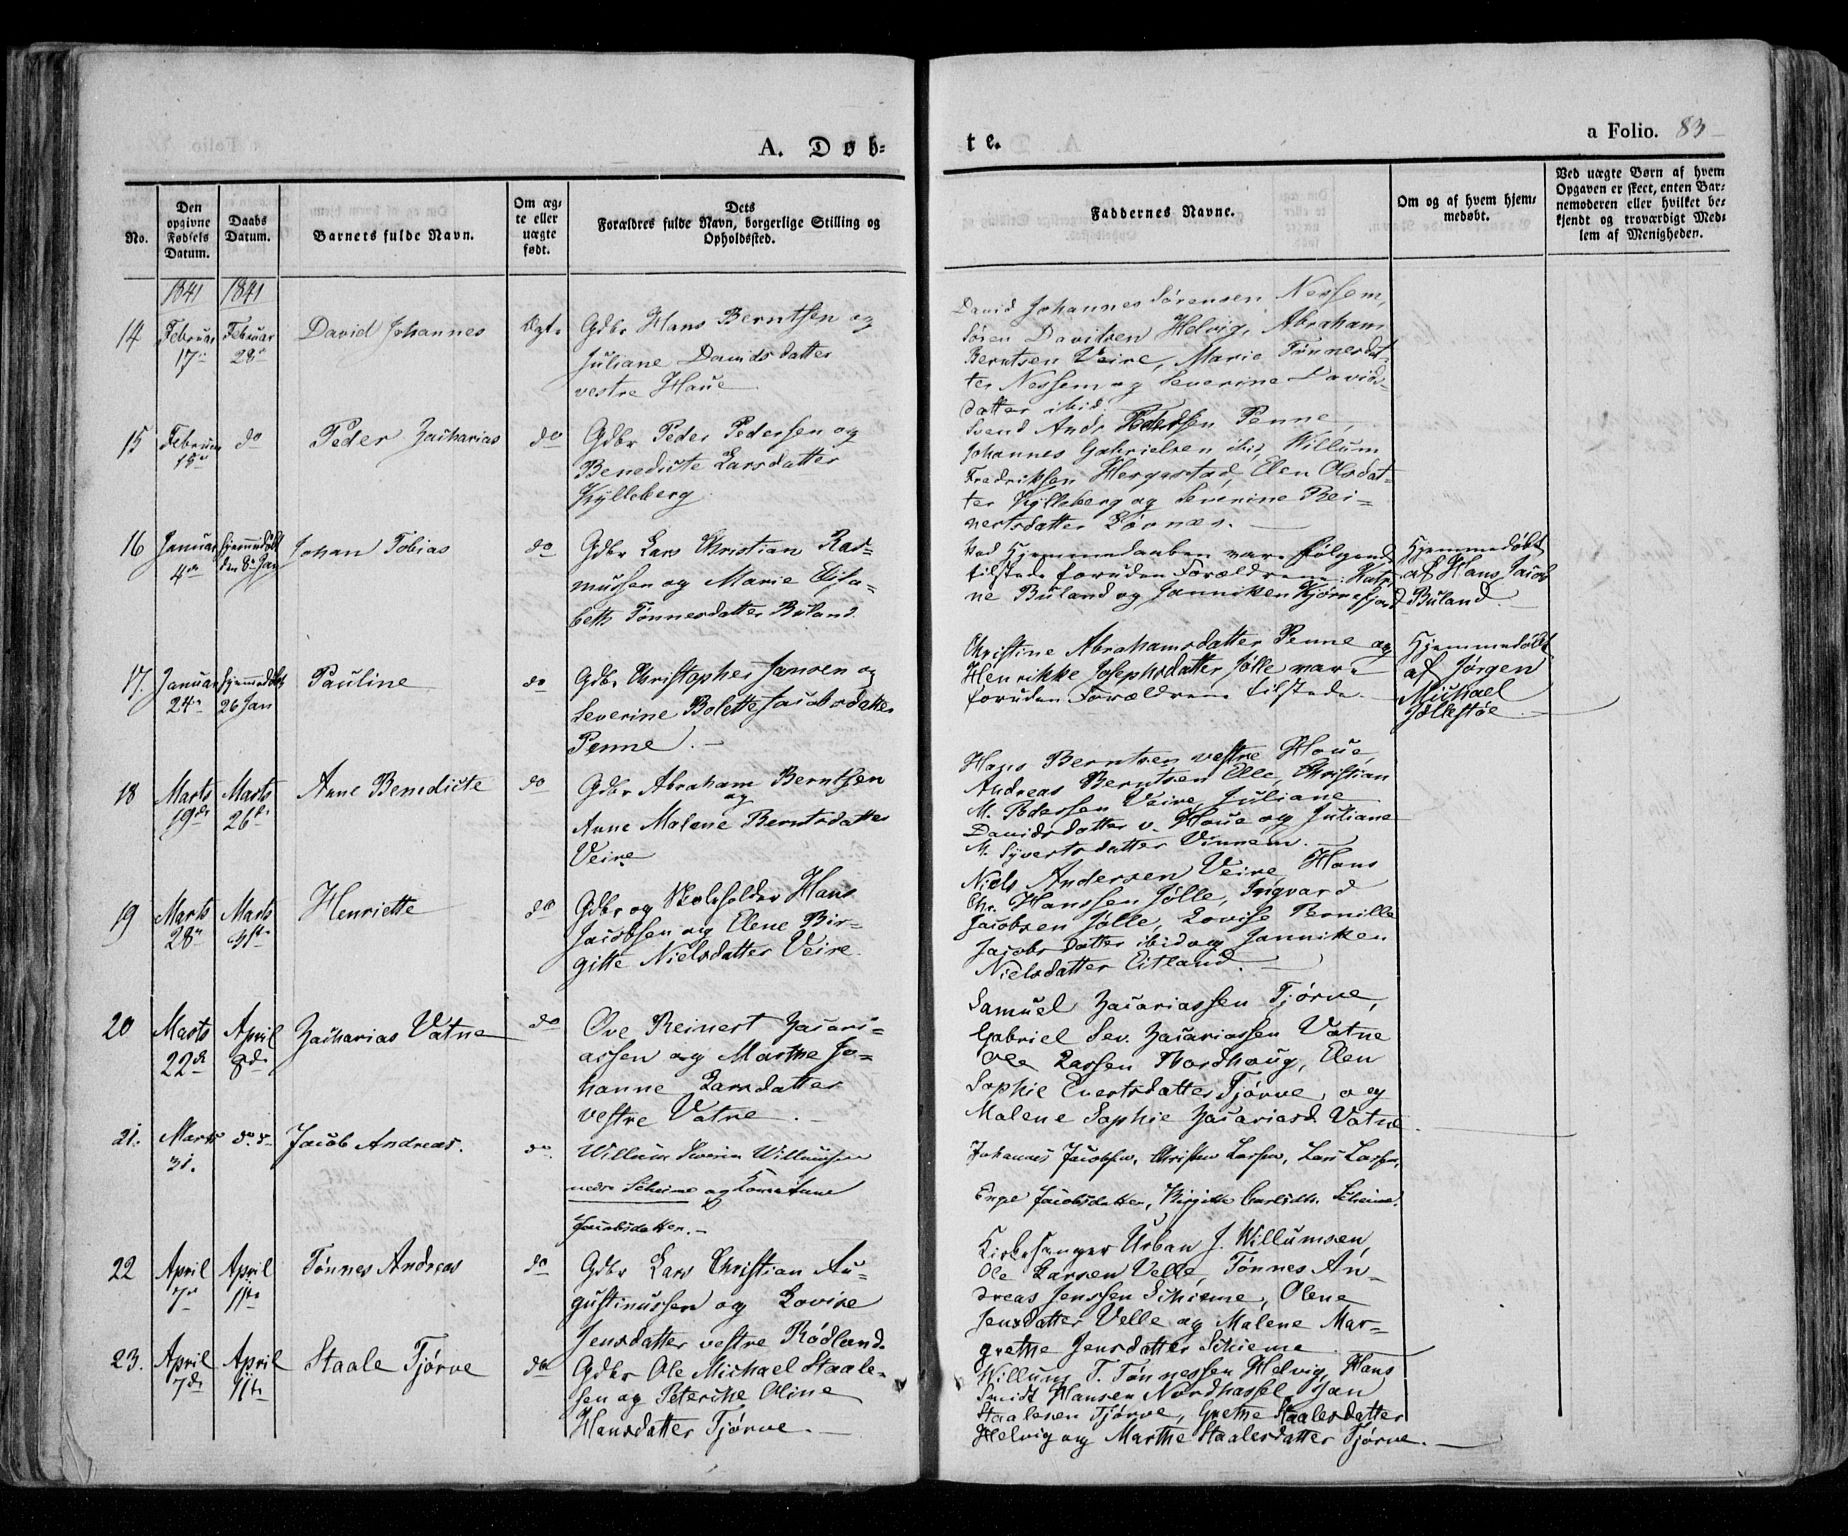 A. Døb-
te.
a Folio. 83
No.
Den opgivne Fødsels Datum.
Daabs Datum.
Barnets fulde Navn.
Om ægte eller uægte født.
Dets Forældres fulde Navn, borgerlige Stilling og Opholdssted.
Faddernes Navne.
Om og af hvem hjemmedøbt.
Ved uægte Børn af hvem Opgaven er skeet, enten Barnemoderen eller hvilket bekjendt og troværdigt Medlem af Menigheden.
1841 1841
14 Februar 17de Februar 28de David Johannes Ægt.
Gdbr Hans Berntsen og
Juliane Davidsdatter
vestre Haue
David Johannes Sørensen Nessem,
Søren Davidsen Helvig, Abraham
Berntsen Veire, Marie Tønnesdat-
ter Nessem og Severine Davids-
datter ibid.
15 Februar do Peder Zacharias do
Gdbr Peder Pedersen og
Benedicte Larsdatter
Kylleberg
Svend Andr. Pedersen Penne,
Johannes Gabrielsen ibid, Willum
Fredriksen Hergestad, Elen Olsdat-
ter Kylleberg og Severine Rei-
nertsdatter
16 Januar 4de Hjemmedøbt den 8de Jan Johan Tobias do
Gdbr Lars Christian Ras-
mussen og Marie Elisa-
beth Tønnesdatter Buland
Ved Hjemmedaaben vare følgende
tilstede foruden Forældrene: Katri-
ne Buland og Janniken Kjørrefjord
Hjemmedøbt
af Hans Jacob
Buland.
17. Januar 24de Hjemmedøbt 26 Jan Pauline do
Gdbr Christopher Jansen og
Severine Bolette Jacobsdatter
Penne.
Christine Abrahamsdatter Penne og
Henrikke Josephsdatter Jølle vare
foruden Forældrene tilstede.
Hjemmedøbt
af Jørgen
Michael
Jøllestøe
18 Marts 19de Marts 26de Anne Benedicte do
Gdbr Abraham Berntsen
og
Anne Malene Berntsdatter
Veire
Hans Berntsen vestre Haue,
Andreas Berntsen Elle, Christian
M. Pedersen Veire, Juliane
Davidsdatter v. Haue og Juliane
M. Syvertsdatter Vinnem.
19 Marts 28de Marts Henriette do
Gdbr og Skoleholder Hans
Jacobsen og Elene Bir-
gitte Nielsdatter Veire.
Niels Andersen Veire, Hans
Chr. Hanssen Jølle, Ingvard
Jacobsen Jølle, Lovise Pernille
Jacobsdatter ibid og Janniken
Nielsdatter Eitland.
20 Marts 22de April 8de Zacharias Vatne do
Ove Reinert Zacari-
assen og Marthe Jo-
hanne Larsdatter
vestre Vatne.
Samuel Zacariassen Tjørve,
Gabriel Sev. Zacariassen Vatne
Ole Larsen Nordhoug, Elen
Sophie Evertsdatter Tjørve, og
Malene Sophie Zacariasd. Vatne.
21. Marts 31. do. d. Jacob Andreas. do.
Willum Severin Willumsen
nedre Scheime og Karen Anne
Jacobsdatter.
Johannes Jacobsen, Christen Larsen, Lars Larsen,
Jacobsdatter, Birgitte Schiime.
22 April 7de April 11te Tønnes Andreas do
Gdbr Lars Christian Au-
gustinussen og Lovise
Jensdatter vestre Rødland.
Kirkesanger Urban J. Willumsen,
Ole Larsen Velle, Tønnes An-
dreas Jenssen Schieme, Olene
Jensdatter Velle og Malene Mar-
grethe Jensdatter Schieme.
23. April 7de April 11te Staale Tjørve do
Gdbr Ole Michael Staale-
sen og Peterine Oline
Hansdatter Tjørve.
Willum T. Tønnessen Helvig, Hans
Smidt Hansen Nordhassel, Jan
Staalesen Tjørve, Grethe Staalesdatter
Helvig og Marthe Staalesdatter Tjørve.